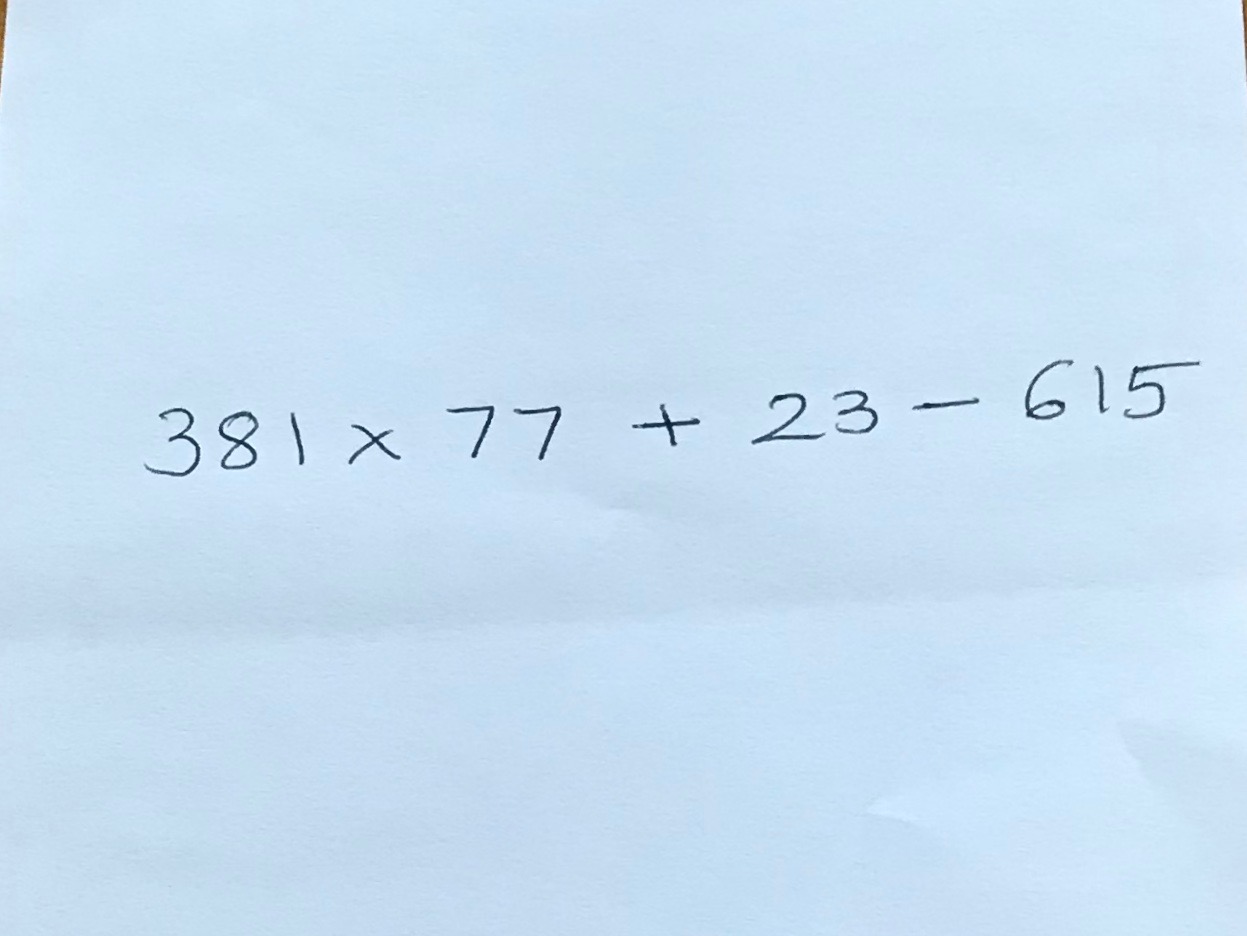 381 × 77 + 23 - 615